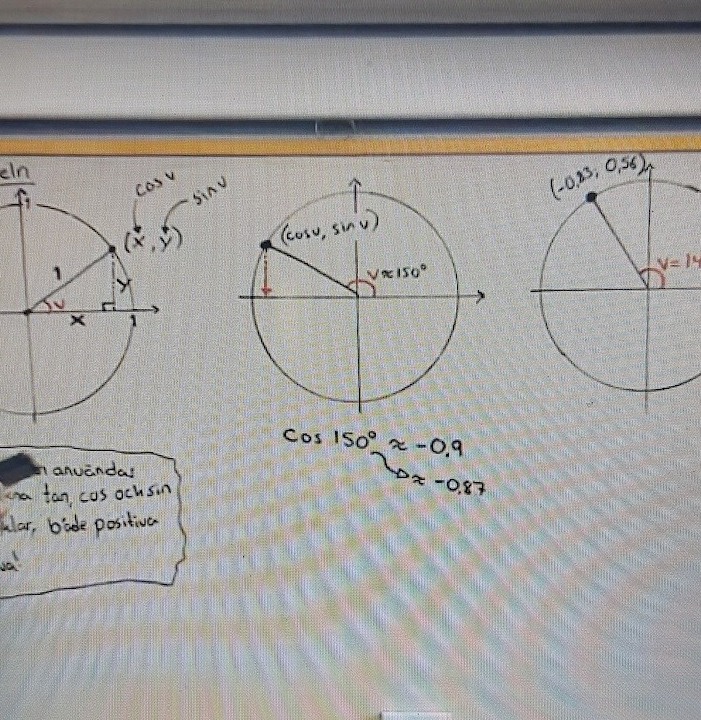 eln
cos v
sin v
(x, y)
1
1
y
v
x
1
(cosv, sin v)
v≈150°
cos 150° ≈ -0,9
≈ -0,87
(-0,83, 0,56)
v= 14
användas
tan, cos och sin
både positiva